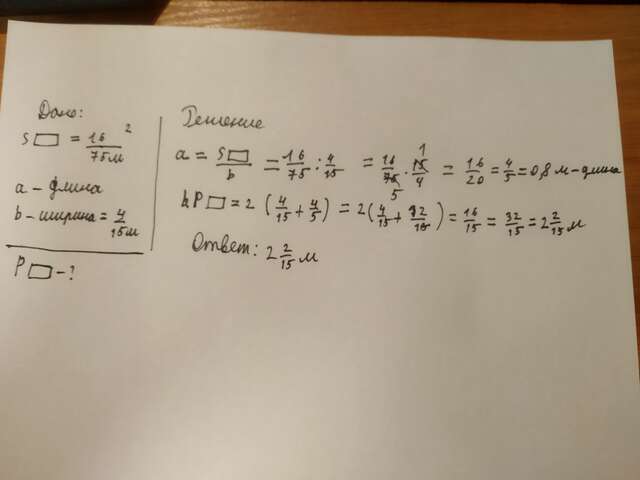 Дано:
S▭ = 16/75 м²
a - длина
b - ширина = 4/15 м
P▭ - ?
Решение
a = S▭/b = 16/75 : 4/15 = 16/75 · 15/4 = 16/20 = 4/5 = 0,8 м - длина
P▭ = 2 (4/15 + 4/5) = 2(4/15 + 12/15) = 16/15 = 32/15 = 2 2/15 м
Ответ: 2 2/15 м